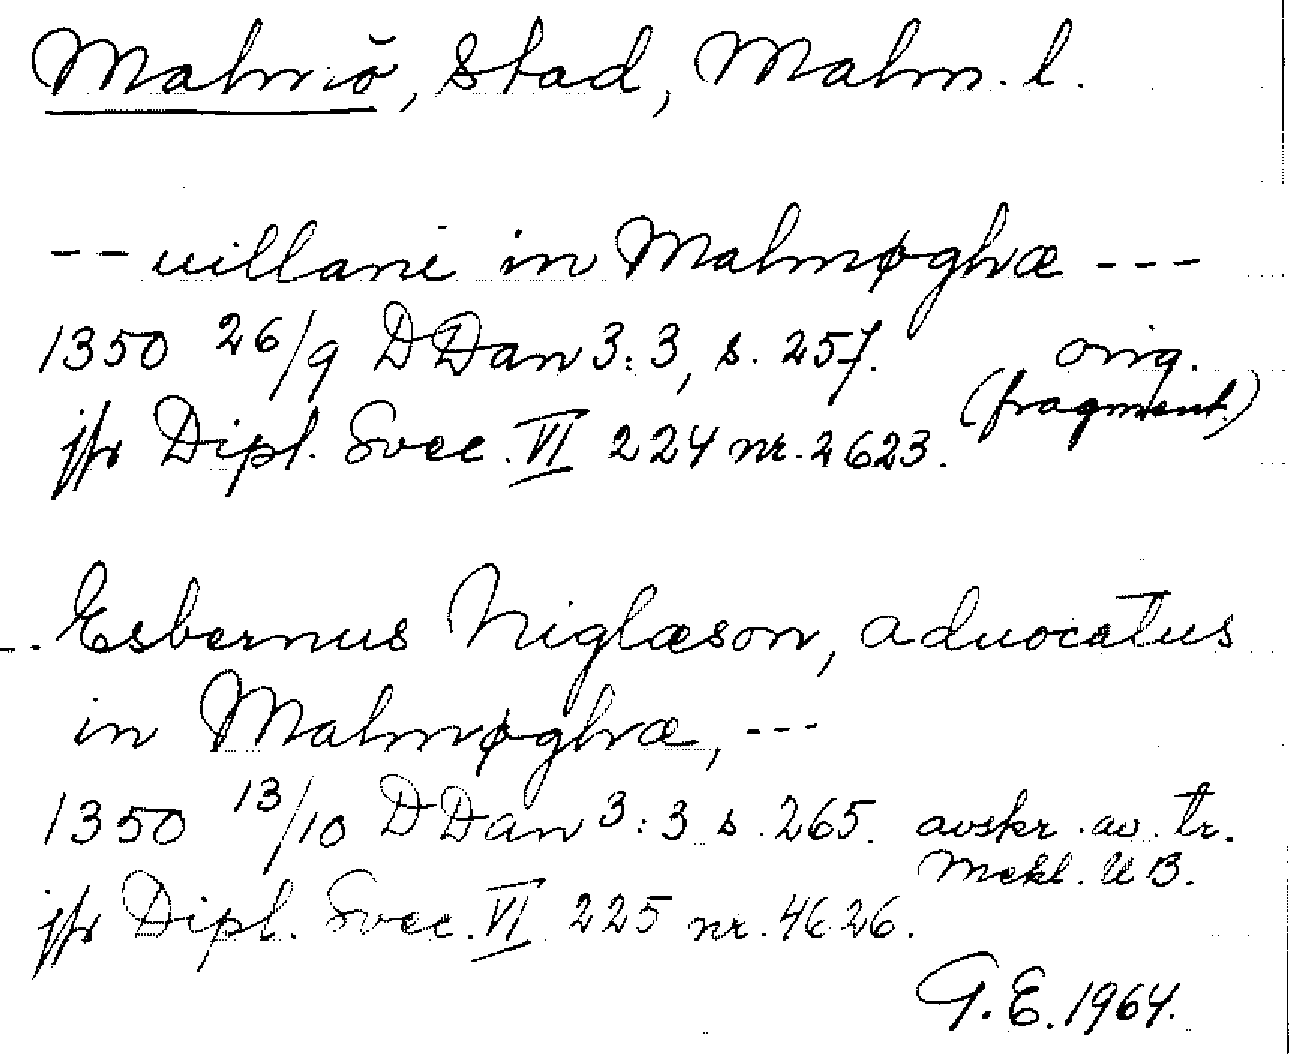 Malmö, Stad, Malm. l.
-- uillani in Malmøghæ ---
1350 26/9 DDan 3:3, s. 257. orig.
(fragment.)
jfr Dipl. Svec. VI 224 nr. 2623.
-. Esbernus Niglæson, aduocatus
in Malmøghæ, ---
1350 13/10 DDan 3:3 s. 265. avskr. av. tr.
Mekl. UB.
jfr Dipl. Svec. VI 225 nr. 4626.
G.E. 1964.